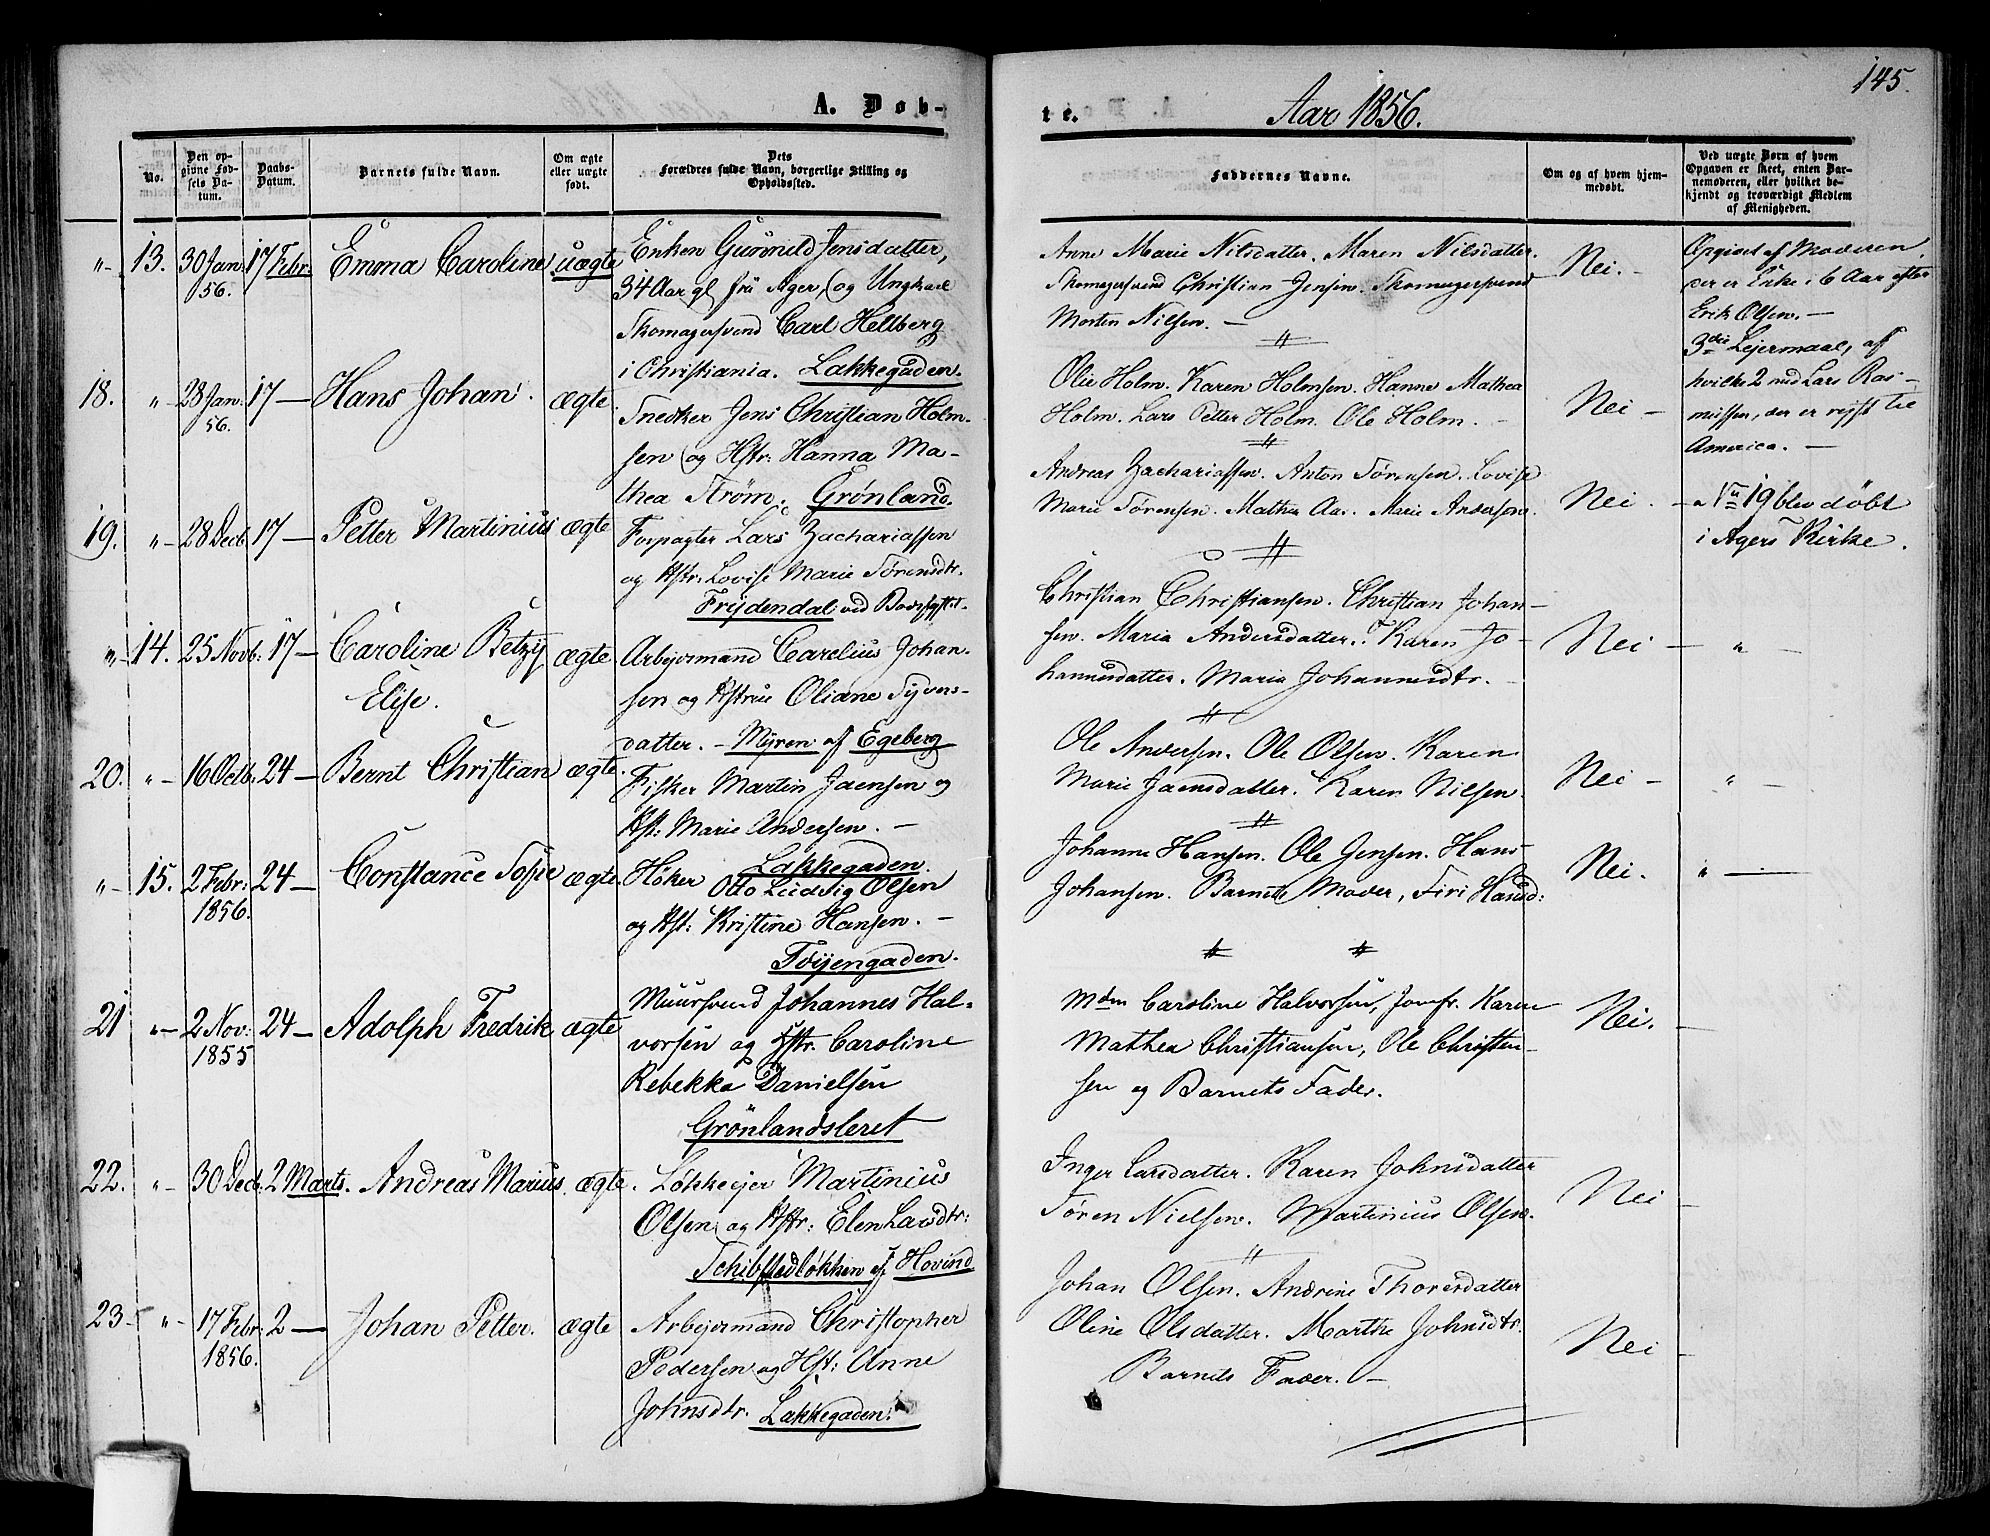 145.
A. Døb-
te.
Aar 1856.
No.
Den op-
givne Fød-
sels Da-
tum.
Daabs-
Datum.
Barnets fulde Navn.
Om ægte
eller uægte
født.
Dets
Forældres fulde Navn, borgerlige Stilling og
Opholdssted.
Faddernes Navne.
Om og af hvem hjem-
medøbt.
Ved uægte Børn af hvem
Opgaven er skeet, enten Bar-
nemoderen, eller hvilket be-
kjendt og troværdigt Medlem
af Menigheden.
"- 13. 30 Jan: 56. 17 Febr: Emma Caroline uægte
Enken Gunnild Jensdatter,
34 Aar gl. frå Ager, og Ungkarl
Skomagersvend Carl Hellberg
i Christiania. Lakkegaden.
Anne Marie Nilsdatter. Maren Nilsdatter.
Skomagersvend Christian Jensen. Skomagersvend
Morten Nilsen. —
Nei. -
Opgivet af Moderen,
der er Enke i 6 Aar efter
Erik Olsen. —
3die Lejermaal, af
hvilke 2 med Lars Ras-
mussen, der er rejst til
America. —
18. "- 28 Jan: 56. 17 — Hans Johan. ægte.
Snedker Jens Christian Holm-
sen og Hstr: Hanna Ma-
thea Strøm. Grønland.
Ole Holm. Karen Holmsen. Hanne Mathea
Holm. Lars Petter Holm. Ole Holm. -
Nei -
19. "- 28 Decb. 17 — Petter Martinius ægte
Forpagter Lars Zachariassen
og Hstr. Lovise Marie Sørensdtr.
Frydendal ved
Andreas Zachariassen. Anton Sørensen. Lovise
Marie Sørensen. Mathea Aas. Marie Andersen.
Nei. -
" No 19 blev døbt
i Agers Kirke.
"- 14. 25 Novb: 17 — Caroline Betzy
Elise. ægte
Arbejdsmand Carelius Johan-
sen og Hstrue Oliane Syvers-
datter. - Myren af Egeberg
Christian Christiansen. Christian Johan-
sen. Maria Andersdatter. Karen Jo-
hannesdatter. Maria Johannesdtr. -
Nei - " -
20. "- 16 Octb. 24 — Bernt Christian ægte.
Fisker Martin Jaensen og
Hst: Marie Andersen. —
Lakkegaden.
Ole Andersen. Ole Olsen. Karen
Marie Jaensdatter. Karen Nilsen.
Nei - " -
"- 15. 2 Febr: 1856. 24 — Constance Sofie ægte.
Høker Otto Ludvig Olsen
og Hst: Kristine Hansen. —
Tøyengaden.
Johanne Hansen. Ole Jensen. Hans
Johansen. Barnets Moder, Siri Hansd:
Nei. " —
21 "- 2 Nov: 1855 24 — Adolph Fredrik ægte
Muursvend Johannes Hal-
vorsen og Hstr. Caroline
Rebekka Danielsen
Grönlandsleret
Mdm Caroline Halvorsen, Jomfr. Karen
Mathea Christiansen, Ole Christen-
sen og Barnets Fader.
Nei. -
22. "- 30 Decb: 2 Marts. Andreas Marius. ægte.
Løkkeejer Martinius
Olsen og Hstr: Elen Larsdtr:
Schibstedløkken af Hovind
Inger Larsdatter. Karen Johnsdatter
Søren Nielsen. Martinius Olsen.
Nei -
23 - "- 17 Febr: 1856. 2 — Johan Petter. ægte
Arbejdsmand Christopher
Pedersen og Hst: Anne
Johnsdtr. Lakkegaden.
Johan Olsen. Andrine Thoresdatter
Oline Olsdatter. Marthe Johnsdtr.
Barnets Fader. —
Nei -